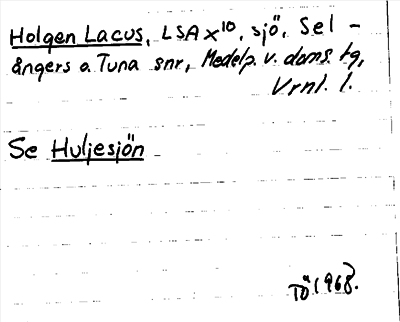 Holgen Lacus, LSA x10, sjö, Sel-
ångers o. Tuna snr, Medelp. v. doms. tg,
Vrnl. l.
Se Huljesjön
TÖ 1968.